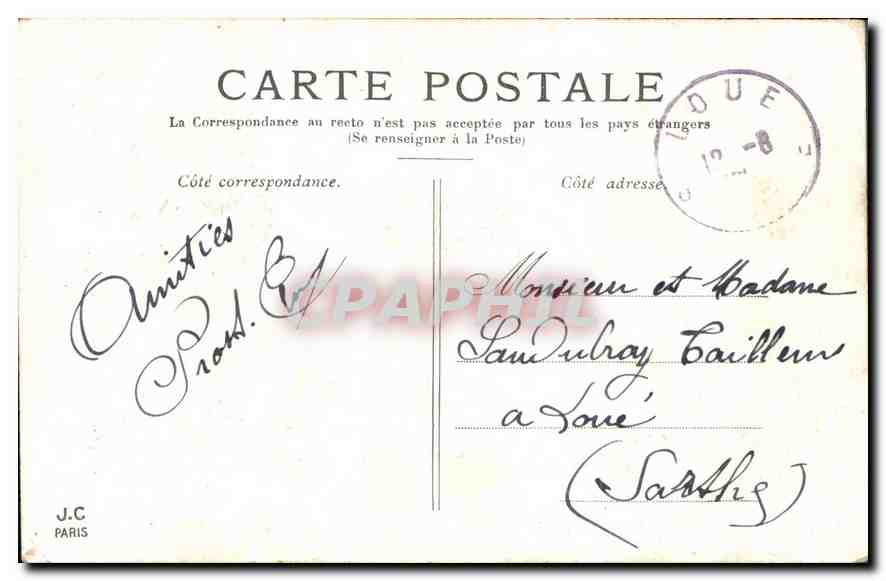 CARTE POSTALE
La Correspondance au recto n'est pas acceptée par tous les pays étrangers
(Se renseigner à la Poste)
Côté correspondance.
Côté adresse.
LOUE
12 -8
Amitiés
CPAPHIL
Monsieur et Madame
Tailleur
a Loué
(Sarthe)
J.C
PARIS